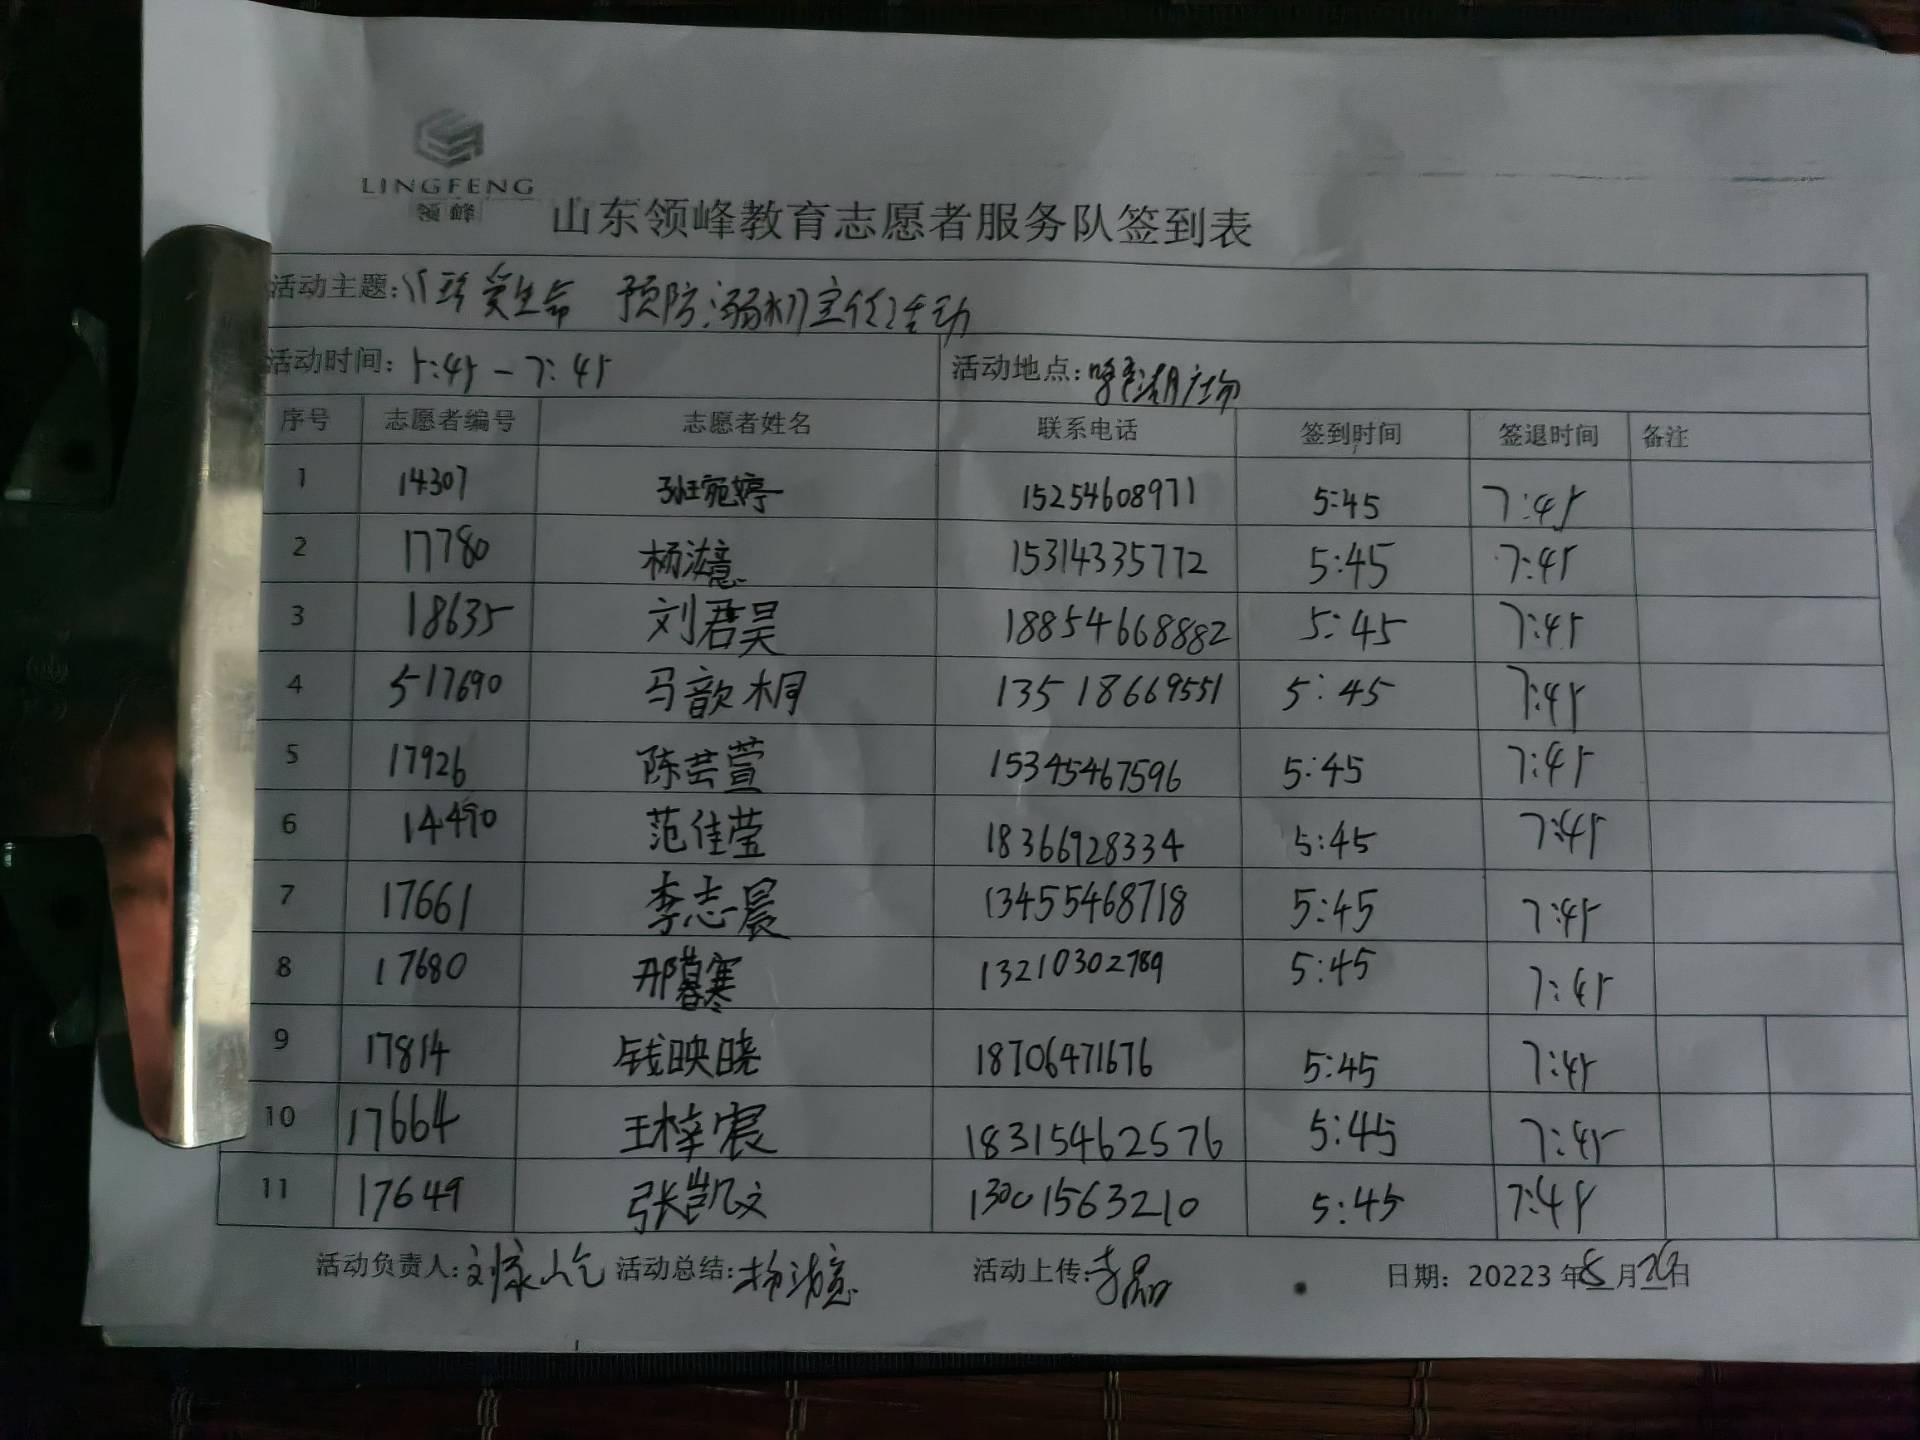 LINGFENG
领峰
山东领峰教育志愿者服务队签到表
活动主题: 珍爱生命 预防溺水 活动
活动时间: 5:45 — 7:45 活动地点: 湖广场
序号 志愿者编号 志愿者姓名 联系电话 签到时间 签退时间 备注
1 14307 孙班宛婷 15254608971 5:45 7:45
2 17780 杨 15314335772 5:45 7:45
3 18635 刘君昊 18854668882 5:45 7:45
4 517690 马歆桐 13518669551 5:45 7:45
5 17926 陈芸萱 15345467596 5:45 7:45
6 14490 范佳莹 18366928334 5:45 7:45
7 17661 李志晨 13455468718 5:45 7:45
8 17680 邢暮寒 13210302789 5:45 7:45
9 17814 钱映晓 18706471676 5:45 7:45
10 17664 王梓宸 18315462576 5:45 7:45
11 17649 张凯文 13001563210 5:45 7:45
活动负责人: 活动总结: 杨 活动上传: 李 日期: 20223 年 8 月 26 日